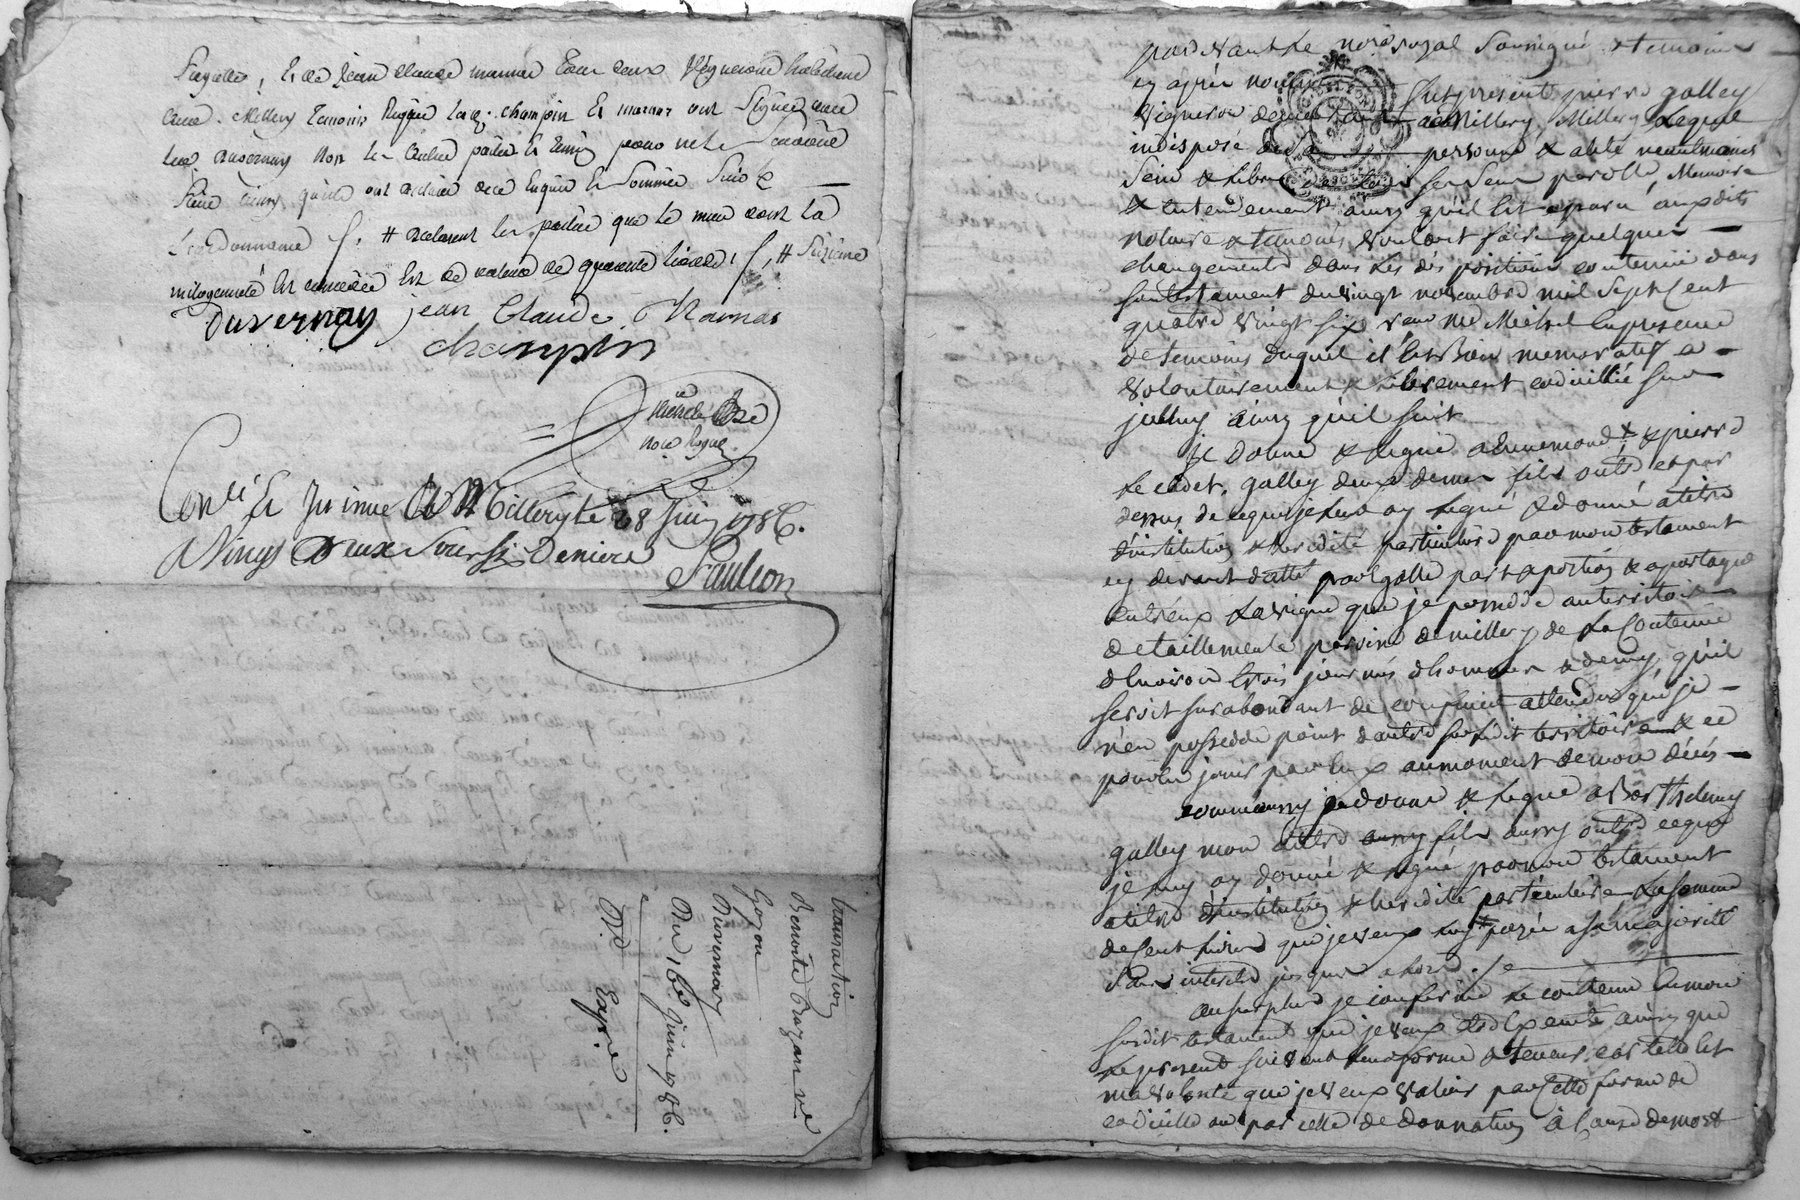 fayolle, & de jean claude marnas tous deux vignerons habitants
audit Millery temoins requis lesq. champin & marnas ont signés avec
led. duvernay non les autres parties & temoin pour ne le savoir
faire ainsy qu'ils ont declaré de ce enquis & sommés suiv.
l'ordonnance ./. # declarent les parties que le mur dont la
mitoyenneté est concedée est de valeur de quarante livres ./. #
Duvernay jean Claude Marnas
champin
not. Royal
Con.lé & Insinué à Millery le 28 Juin 1786.
Vingt Deux Sous six Deniers
Saulson
transaction
Benoite Brazan ve
Goyon
Duvernay
Du 18e juin 1786.
Expié
pardevant le no.re royal soussigné & temoins
cy après nommés fut present pierre galley
vigneron demeurant à Millery, lequel
indisposé de sa personne & alité neanmoins
sain & libre de tous ses sens parolle, memoire
& entendement ainsy qu'il est aparu auxdits
notaire & temoins voulant faire quelques
changements dans les dispositions contenues dans
son testament du vingt novembre mil sept cent
quatre vingt six reçu me Michel en presence
de temoins duquel il est bien memoratif a
volontairement & librement codicillé sur
jcelluy ainsy qu'il suit
je donne & legue a Ennemond & pierre
le cadet, galley deux de mes fils outre et par
dessus ce que je leur ay legué & donné a titre
d'institution & heredité particuliere par mon testament
cy devant datté pour egalle part & portion & a partager
entr'eux la vigne que je possede au territoire
de taillemente parroisse de millery de la contenue
d'environ trois journées d'hommes & demy, qu'il
seroit surabondant de confiner attendu que je
n'en possedde point d'autre susdit territoire & ce
pour en jouir par eux au moment de mon décès
comm'aussy je donne & legue a Barthelemy
galley mon autre fils aussy outre ce que
je luy ay donné & legué par mon testament
a titre d'institution & heredité particuliere la somme
de cent livres que je veux luy etre payée a sa majorité
sans interets jusques a lors ./.
au surplus je confirme le contenu en mon
susdit testament que je veux etre executé ainsy que
le present suivant leur forme & teneur, car telle est
ma volonté que je veux valoir par cette forme de
codicille ou par celle de donnation à cause de mort